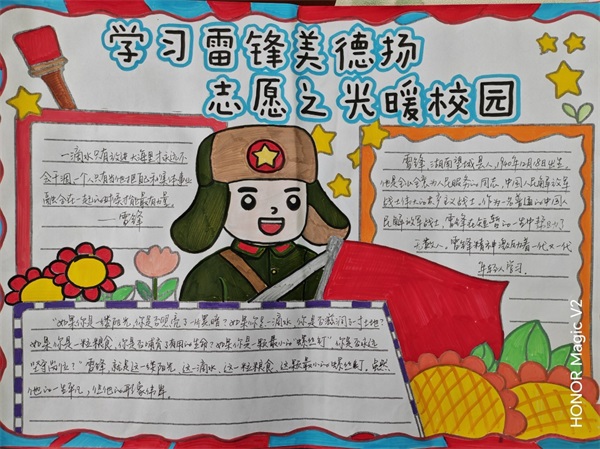 学习雷锋美德扬
志愿之光暖校园
一滴水只有放进大海里才永远不
会干涸，一个人只有当他把自己和集体事业
融合在一起的时候才能最有力量。
——雷锋
雷锋，湖南望城县人，1940年12月18日出生，
他是全心全意为人民服务的
中国人民解放军
战士，伟大的共产主义战士，作为一名普通的中国人
民解放军战士，雷锋在短暂的一生中
了
无数人，雷锋精神激励着一代又一代
年轻人学习。
"如果你是一缕阳光，你是否照亮了一片黑暗？如果你是一滴水，你是否滋润了一寸土地？
如果你是一粒粮食，你是否哺育了有用的生命？如果你是一颗最小的螺丝钉，你是否永远
坚守岗位？"雷锋就是这一缕阳光，这一滴水，这一粒粮食，这颗最小的螺丝钉，虽然
他的一生
，但他的形象伟岸。
HONOR Magic V2